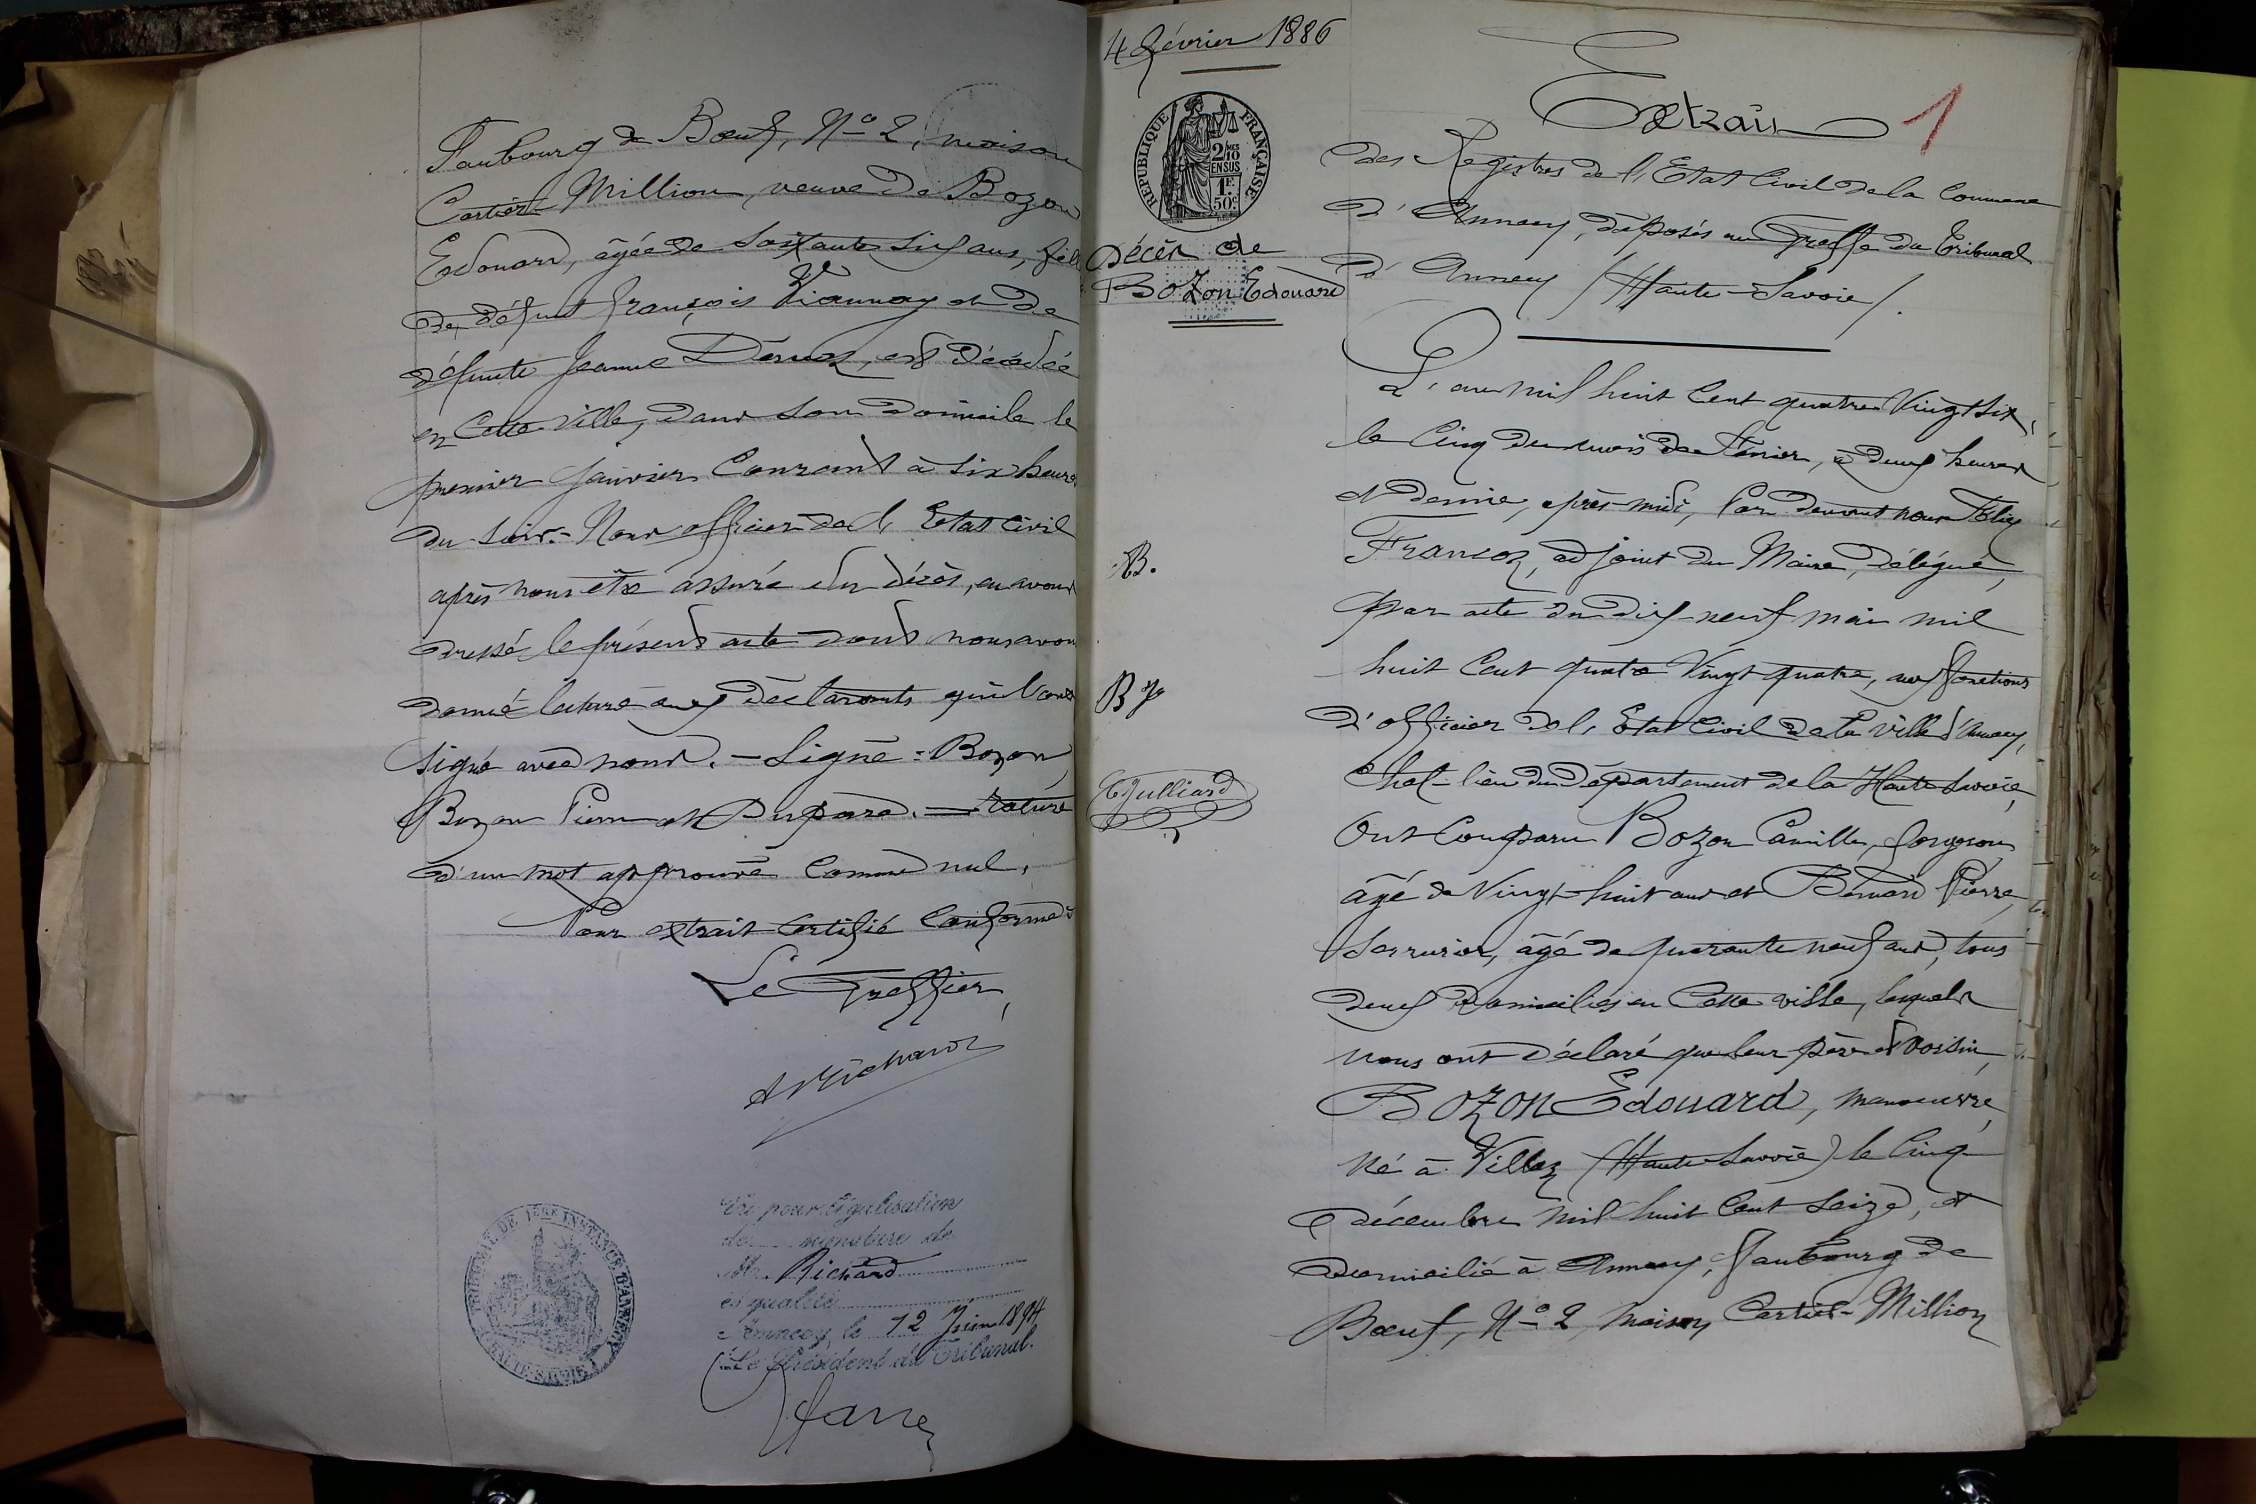 Faubourg de Bœuf, N° 2, maison
Cartier-Million, veuve de Bozon
Edouard, âgée de soixante six ans, fille
de défunt François Viannay et de
défunte Jeanne Dernoz, est décédée
en cette ville, dans son domicile le
premier Janvier courant à six heures
du soir. - Nous officier de l'Etat civil
après nous être assuré du décès, en avons
dressé le présent acte dont nous avons
donné lecture aux déclarants qui l'ont
signé avec nous. - Signé : Bozon,
Bozon Pierre et Dupare. = rature
d'un mot approuvée comme nul.
Pour extrait certifié conforme
Le Greffier,
A Richard
Vu pour légalisation
de signature de
M. Richard
ès qualité
Annecy, le 12 Juin 1894
Le Président du Tribunal.
TRIBUNAL DE 1ÈRE INSTANCE D'ANNECY
HAUTE-SAVOIE
4 février 1886
REPUBLIQUE FRANÇAISE
2/10
EN SUS
1F
50c
Décès de
Bozon Edouard
B.
B
Julliard
Extrait
1
des Registres de l'Etat Civil de la Commune
d'Annecy, déposés au Greffe du Tribunal
d'Annecy (Haute-Savoie).
L'an mil huit cent quatre vingt six,
le cinq du mois de Février, à deux heures
et demie, après-midi, Par devant nous Félix
Francoz, adjoint du Maire, délégué,
par acte du dix-neuf mai mil
huit cent quatre vingt quatre, aux fonctions
d'officier de l'Etat Civil de la ville d'Annecy,
Chef-lieu du Département de la Haute Savoie,
Ont comparu Bozon Camille, forgeron,
âgé de vingt-huit ans et Bernard Pierre,
serrurier, âgé de quarante neuf ans, tous
deux domiciliés en cette ville, lesquels
nous ont déclaré que leur père et voisin,
Bozon Edouard, manœuvre,
né à Villaz (Haute-Savoie) le cinq
décembre mil huit cent seize, et
domicilié à Annecy, faubourg de
Bœuf, N° 2, maison Cartier-Million